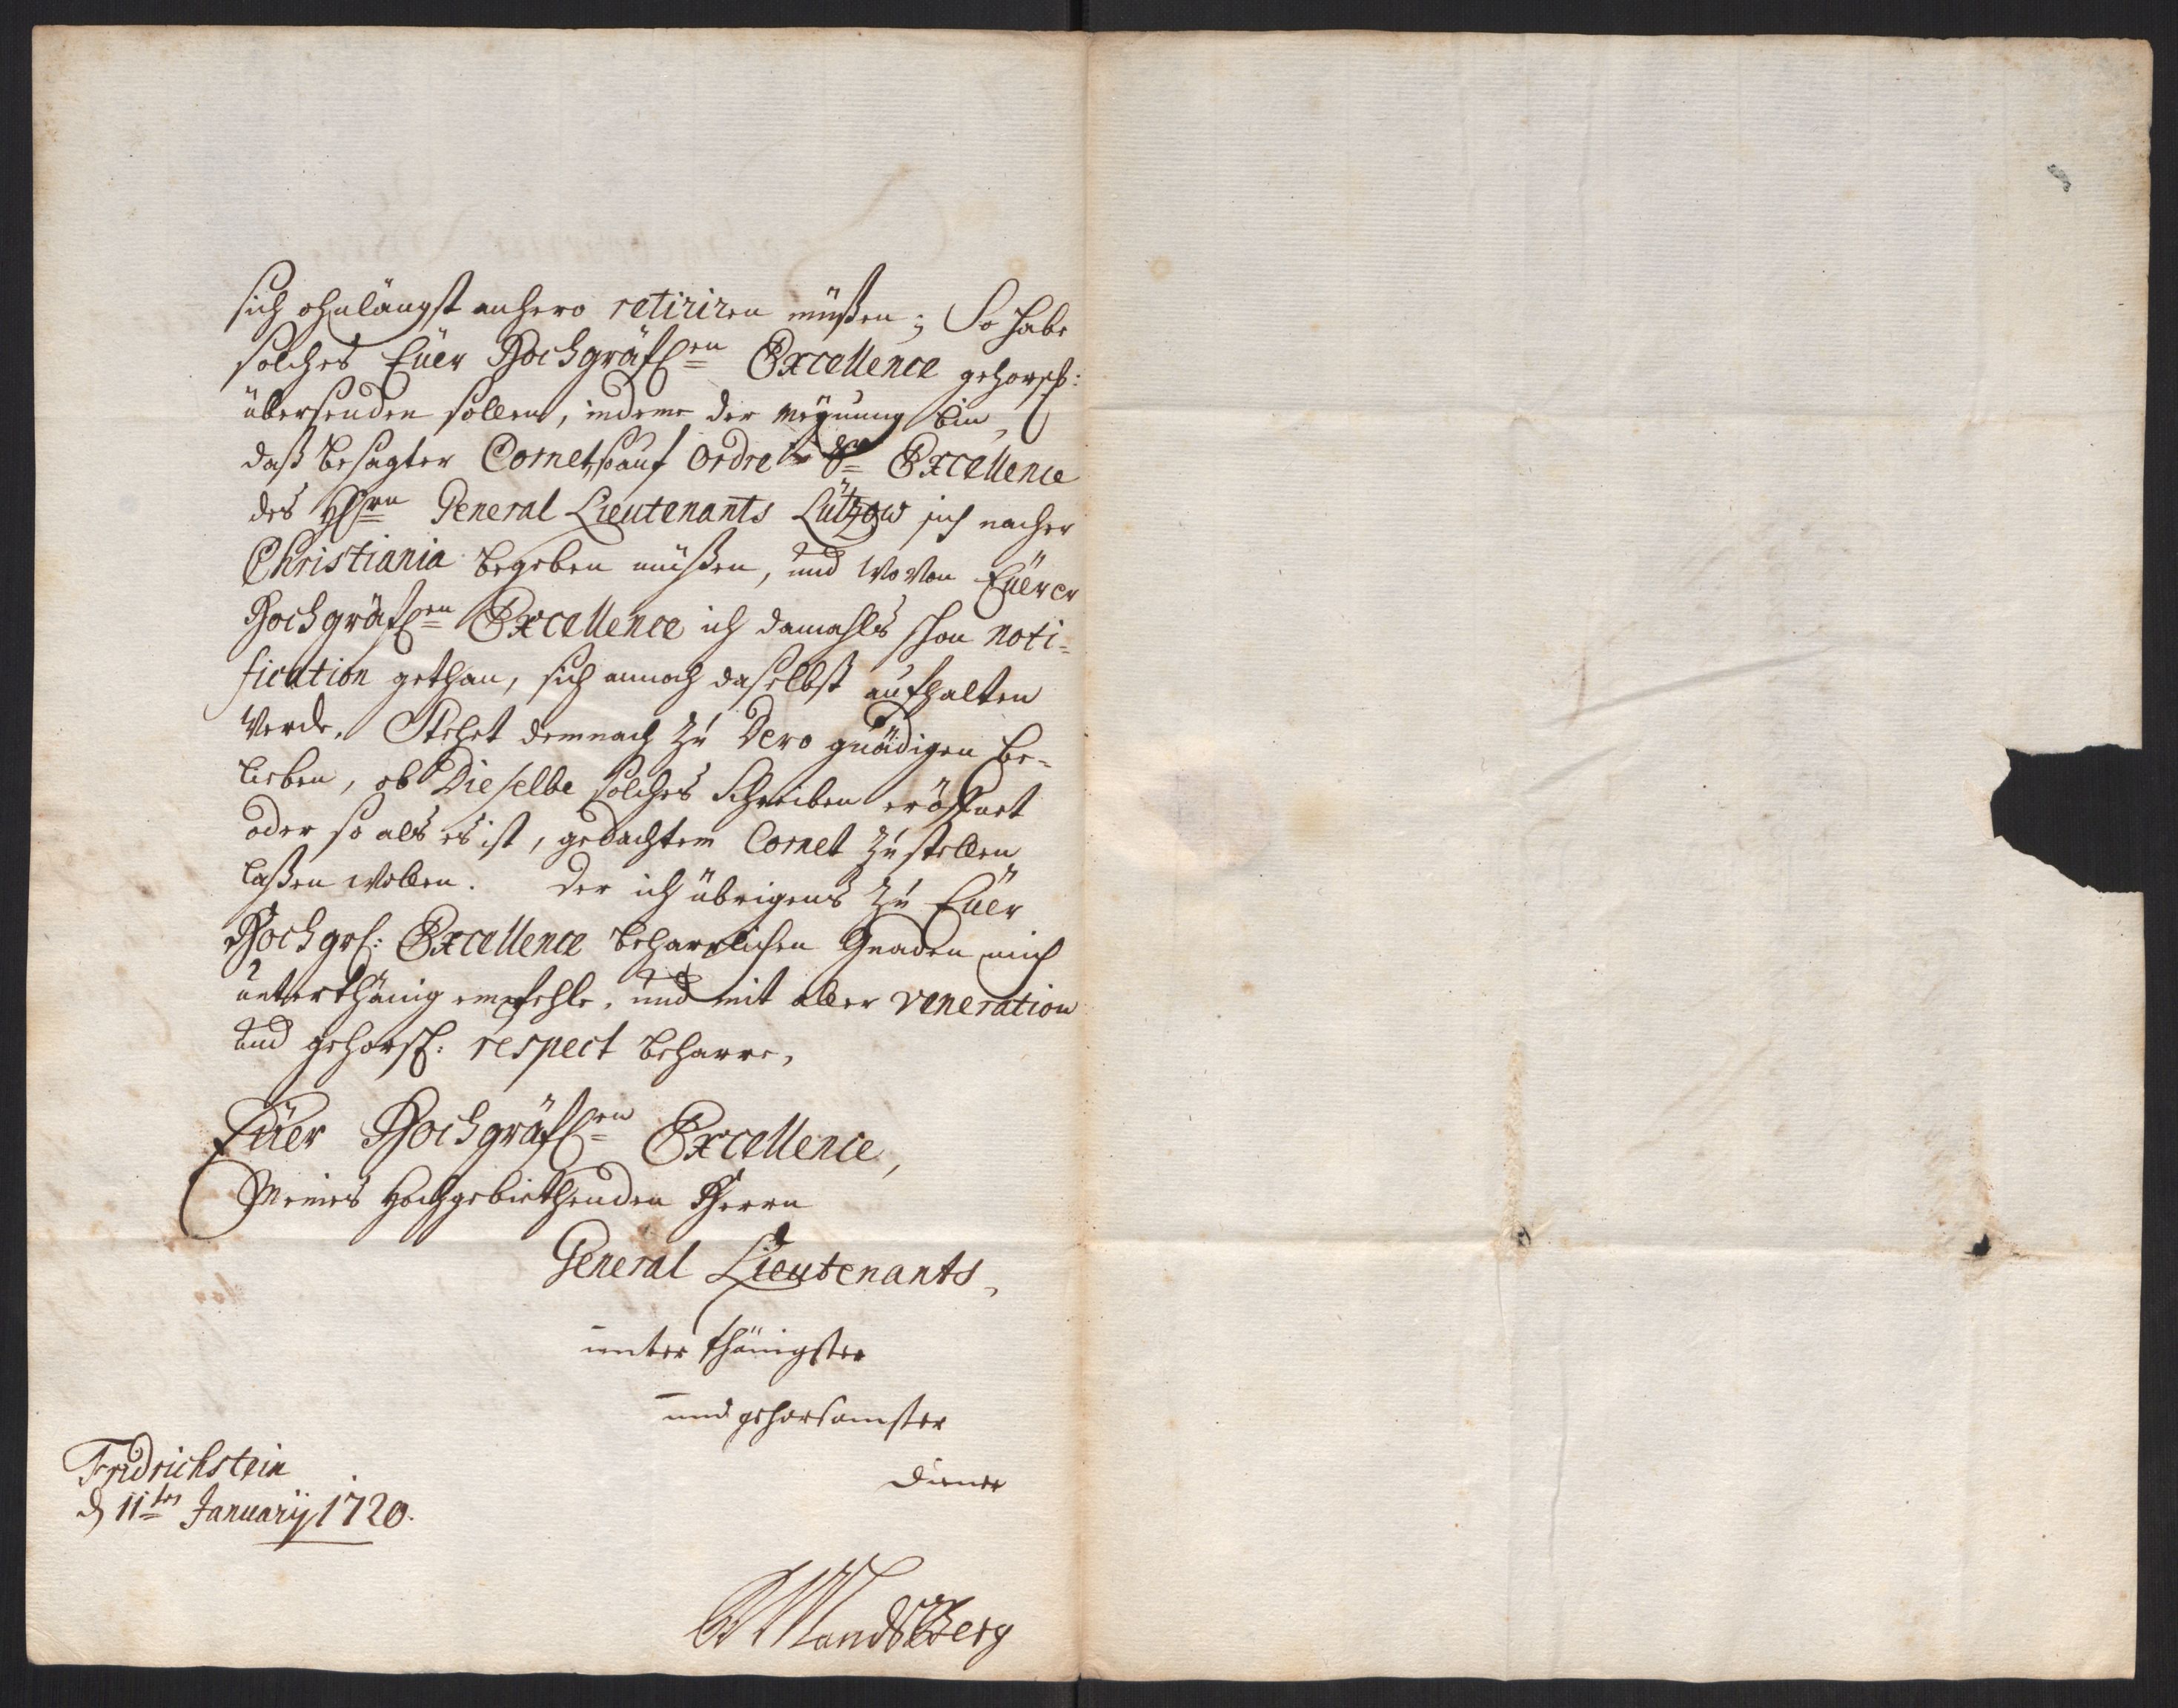 sich ohnlängst anhero retiriren müßen; So habe
solches Eüer Hochgräfl:en Excellence gehorsl:
übersenden sollen, indeme der meÿnung bin,
daß besagter Cornet, so auf Ordre Sr Excellence
des Hhrn General Lieutenants Lützow sich nacher
Christiania begeben müßen, und wovon Eüerer
Hochgräfl:en Excellence ich damahls schon noti-
fication gethan, sich annoch daselbst aufhalten
werde. Stehet demnach zu Dero gnädigen be-
lieben, ob Dieselbe solches Schreiben eröffnet
oder so als es ist, gedachtem Cornet zustellen
laßen wollen. Der ich übrigens zu Eüer
Hochgrl: Excellence beharrlichen Gnaden mich
unterthänig empfehle, und mit aller veneration
und gehorsl: respect beharre,
Eüer Hochgräfl:en Excellence,
Meines Hochgebiethenden Herrn
General Lieutenants,
unterthänigster
und gehorsamster
Diener
Fridrichstein
d 11ten Januarÿ 1720.
MandsBerg